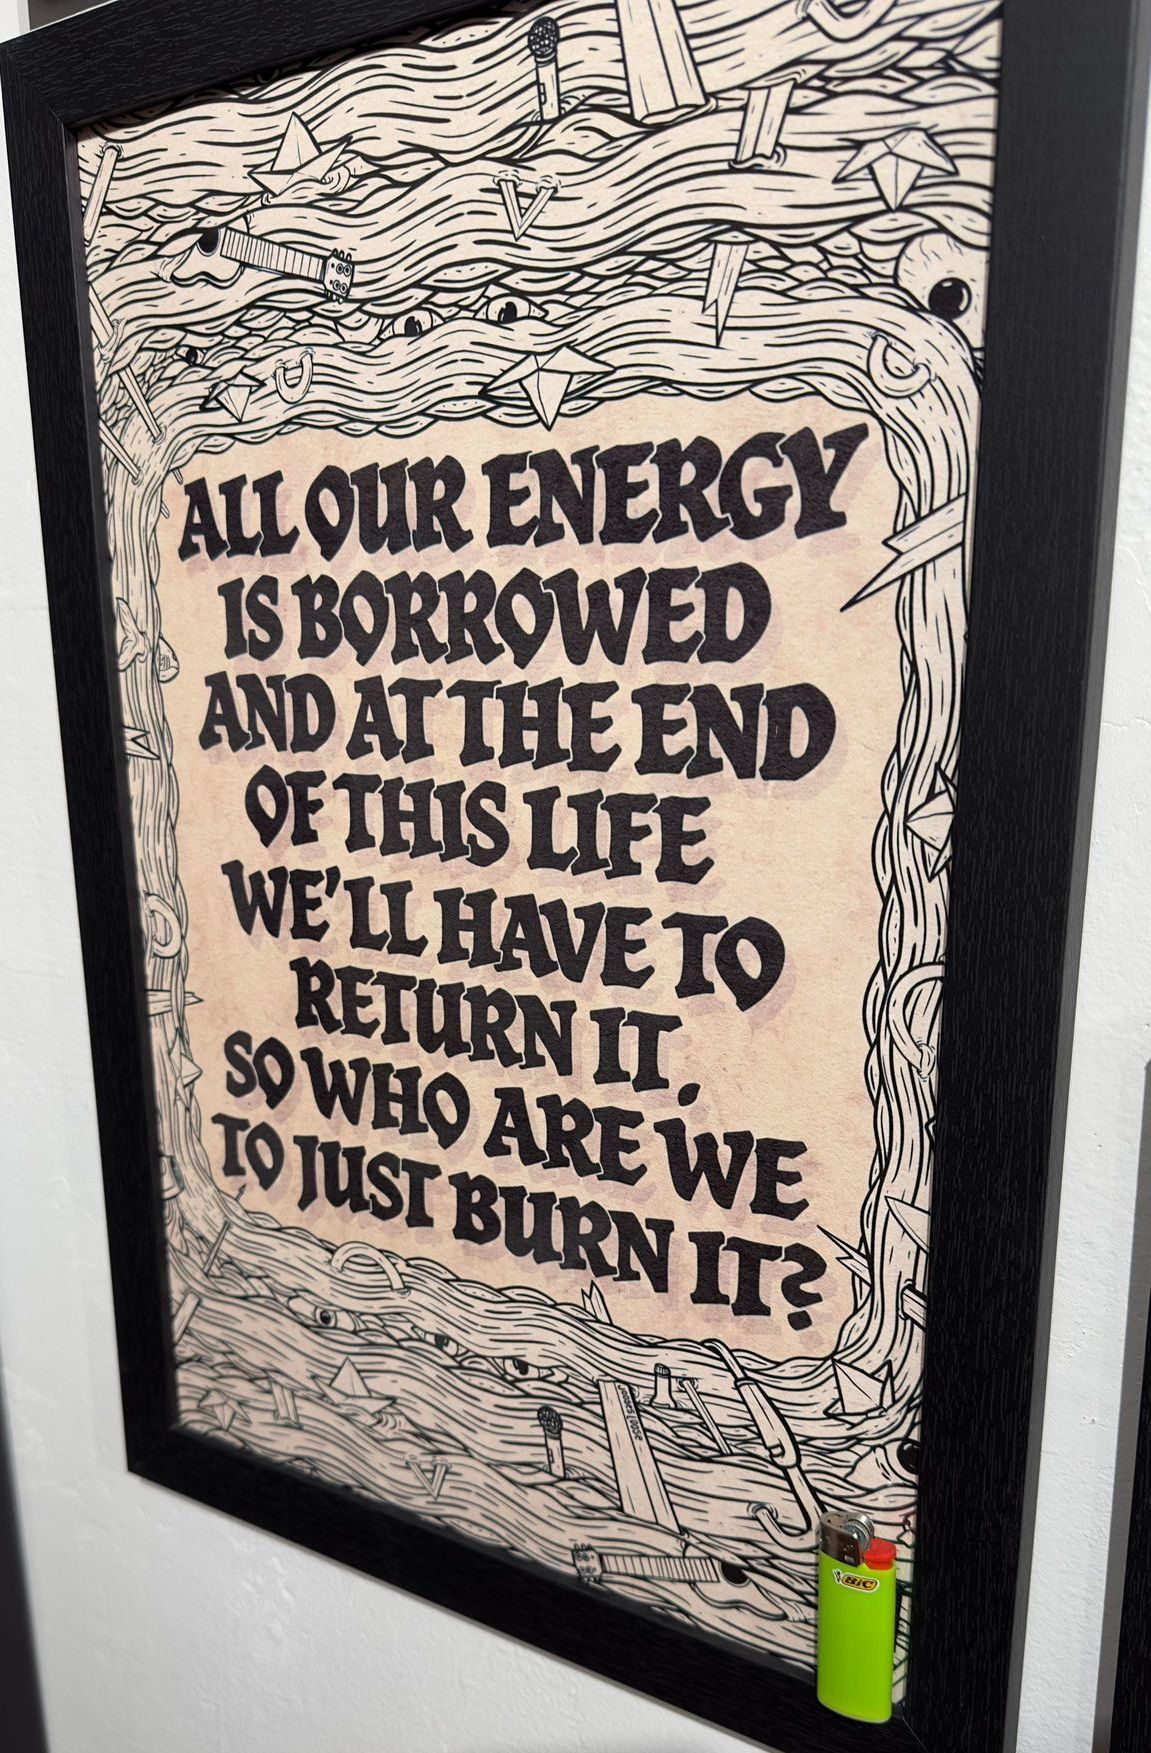 ALL OUR ENERGY
IS BORROWED
AND AT THE END
OF THIS LIFE
WE'LL HAVE TO
RETURN IT.
SO WHO ARE WE
TO JUST BURN IT?
BIC